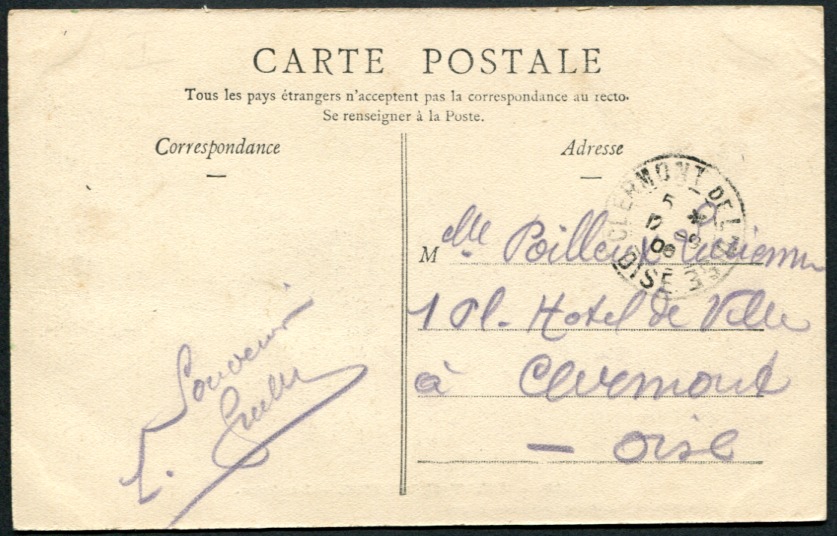 CARTE POSTALE
Tous les pays étrangers n'acceptent pas la correspondance au recto.
Se renseigner à la Poste.
Correspondance
Adresse
CLERMONT DE L'
OISE
M elle Poilleux Lucienne
1 Pl. Hotel de Ville
à Clermont
- Oise
Souvenir